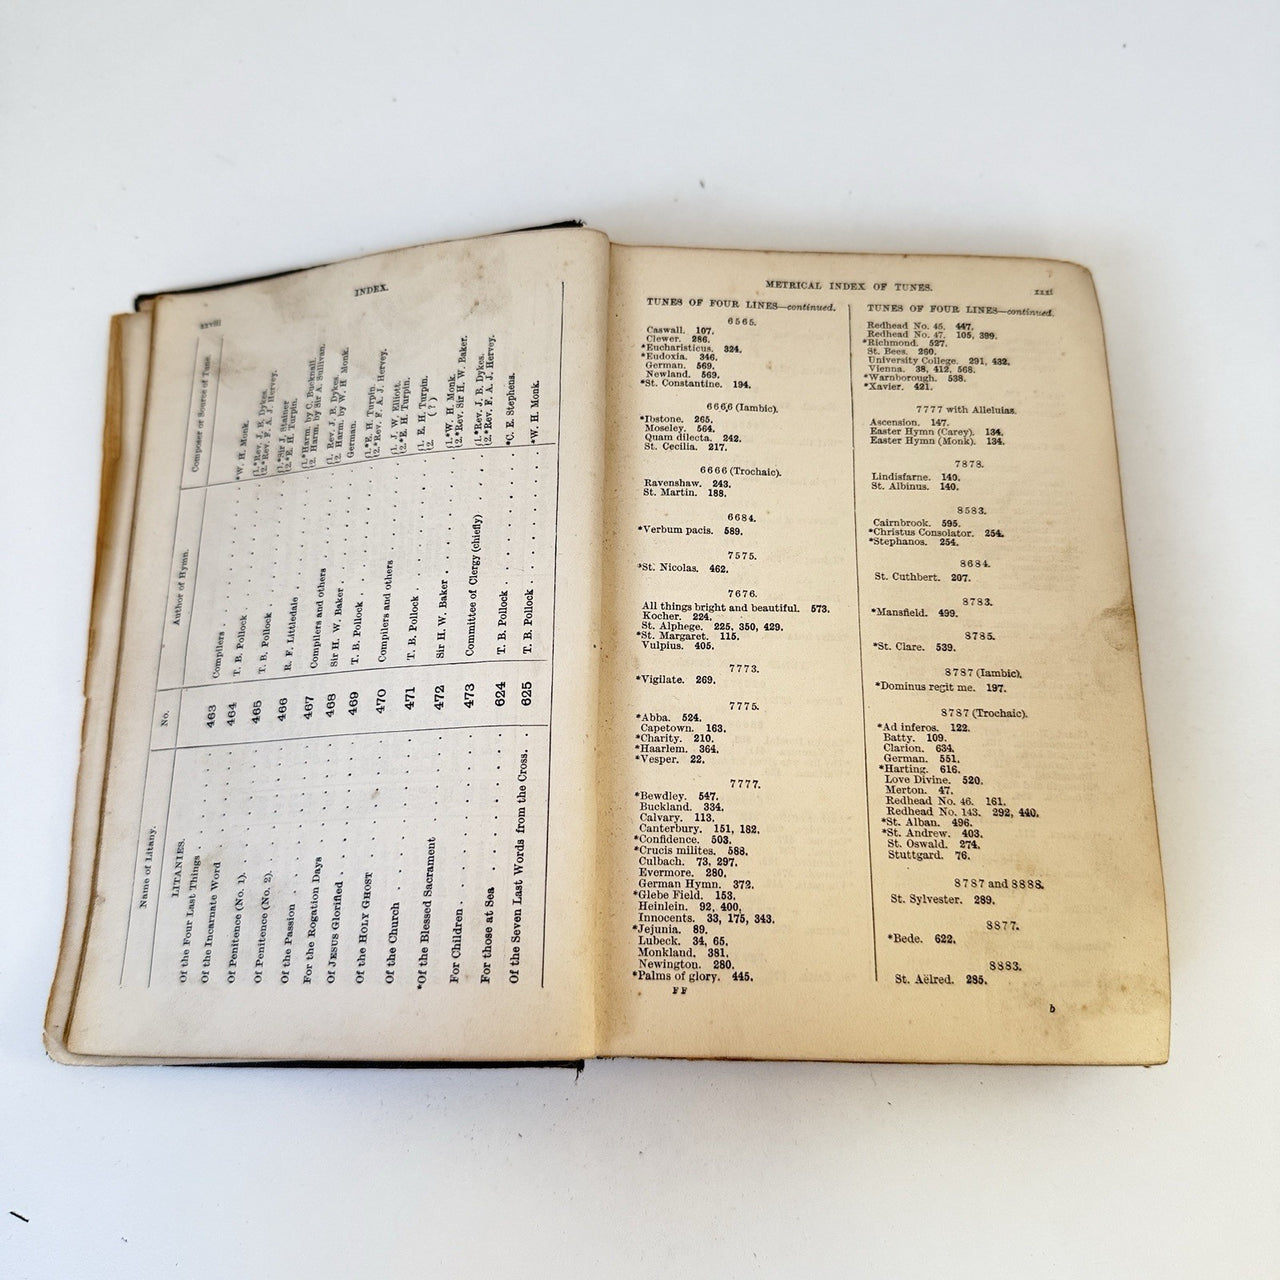 xxviii
INDEX.
Name of Litany. No. Author of Hymn. Composer or Source of Tune.
LITANIES.
Of the Four Last Things . . . . 463 Compilers . . . . *W. H. Monk.
Of the Incarnate Word . . . . 464 T. B. Pollock . . . . {1.*Rev. J. B. Dykes. {2.*Rev. F. A. J. Hervey.
Of Penitence (No. 1). . . . . 465 T. B. Pollock . . . . {1.*Sir J. Stainer {2.*E. H. Turpin.
Of Penitence (No. 2). . . . . 466 R. F. Littledale . . . . {1.*Harm. by C. Bucknall. {2. Harm. by Sir A. Sullivan.
Of the Passion . . . . 467 Compilers and others {1. Rev. J. B. Dykes. {2. Harm. by W. H. Monk.
For the Rogation Days 468 Sir H. W. Baker . . . . German.
Of JESUS Glorified . . . . 469 T. B. Pollock . . . . {1.*E. H. Turpin. {2.*Rev. F. A. J. Hervey.
Of the HOLY GHOST 470 Compilers and others {1. J. W. Elliott. {2.*E. H. Turpin.
Of the Church . . . . 471 T. B. Pollock . . . . {1. E. H. Turpin. {2. ( ? )
*Of the Blessed Sacrament 472 Sir H. W. Baker . . . . {1.*W. H. Monk. {2.*Rev. Sir H. W. Baker.
For Children . . . . 473 Committee of Clergy (chiefly) {1.*Rev. J. B. Dykes. {2.*Rev. F. A. J. Hervey.
For those at Sea . . . . 624 T. B. Pollock . . . . *C. E. Stephens.
Of the Seven Last Words from the Cross. . 625 T. B. Pollock . . . . *W. H. Monk.
METRICAL INDEX OF TUNES.
xxxi
TUNES OF FOUR LINES—continued.
6565.
Caswall. 107.
Clewer. 286.
*Eucharisticus. 324.
*Eudoxia. 346.
German. 569.
Newland. 569.
*St. Constantine. 194.
6666 (Iambic).
*Ibstone. 265.
Moseley. 564.
Quam dilecta. 242.
St. Cecilia. 217.
6666 (Trochaic).
Ravenshaw. 243.
St. Martin. 188.
6684.
*Verbum pacis. 589.
7575.
*St. Nicolas. 462.
7676.
All things bright and beautiful. 573.
Kocher. 224.
St. Alphege. 225, 350, 429.
*St. Margaret. 115.
Vulpius. 405.
7773.
*Vigilate. 269.
7775.
*Abba. 524.
Capetown. 163.
*Charity. 210.
*Haarlem. 364.
*Vesper. 22.
7777.
*Bewdley. 547.
Buckland. 334.
Calvary. 113.
Canterbury. 151, 182.
*Confidence. 503.
*Crucis milites. 588.
Culbach. 73, 297.
Evermore. 280.
German Hymn. 372.
*Glebe Field. 153.
Heinlein. 92, 400.
Innocents. 33, 175, 343.
*Jejunia. 89.
Lubeck. 34, 65.
Monkland. 381.
Newington. 280.
*Palms of glory. 445.
FF
TUNES OF FOUR LINES—continued.
Redhead No. 45. 447.
Redhead No. 47. 105, 399.
*Richmond. 527.
St. Bees. 260.
University College. 291, 432.
Vienna. 38, 412, 568.
*Warnborough. 538.
*Xavier. 421.
7777 with Alleluias.
Ascension. 147.
Easter Hymn (Carey). 134.
Easter Hymn (Monk). 134.
7878.
Lindisfarne. 140.
St. Albinus. 140.
8583.
Cairnbrook. 595.
*Christus Consolator. 254.
*Stephanos. 254.
8684.
St. Cuthbert. 207.
8783.
*Mansfield. 499.
8785.
*St. Clare. 539.
8787 (Iambic).
*Dominus regit me. 197.
8787 (Trochaic).
*Ad inferos. 122.
Batty. 109.
Clarion. 634.
German. 551.
*Harting. 616.
Love Divine. 520.
Merton. 47.
Redhead No. 46. 161.
Redhead No. 143. 292, 440.
*St. Alban. 496.
*St. Andrew. 403.
St. Oswald. 274.
Stuttgard. 76.
8787 and 8888.
St. Sylvester. 289.
8877.
*Bede. 622.
8883.
St. Aëlred. 285.
b